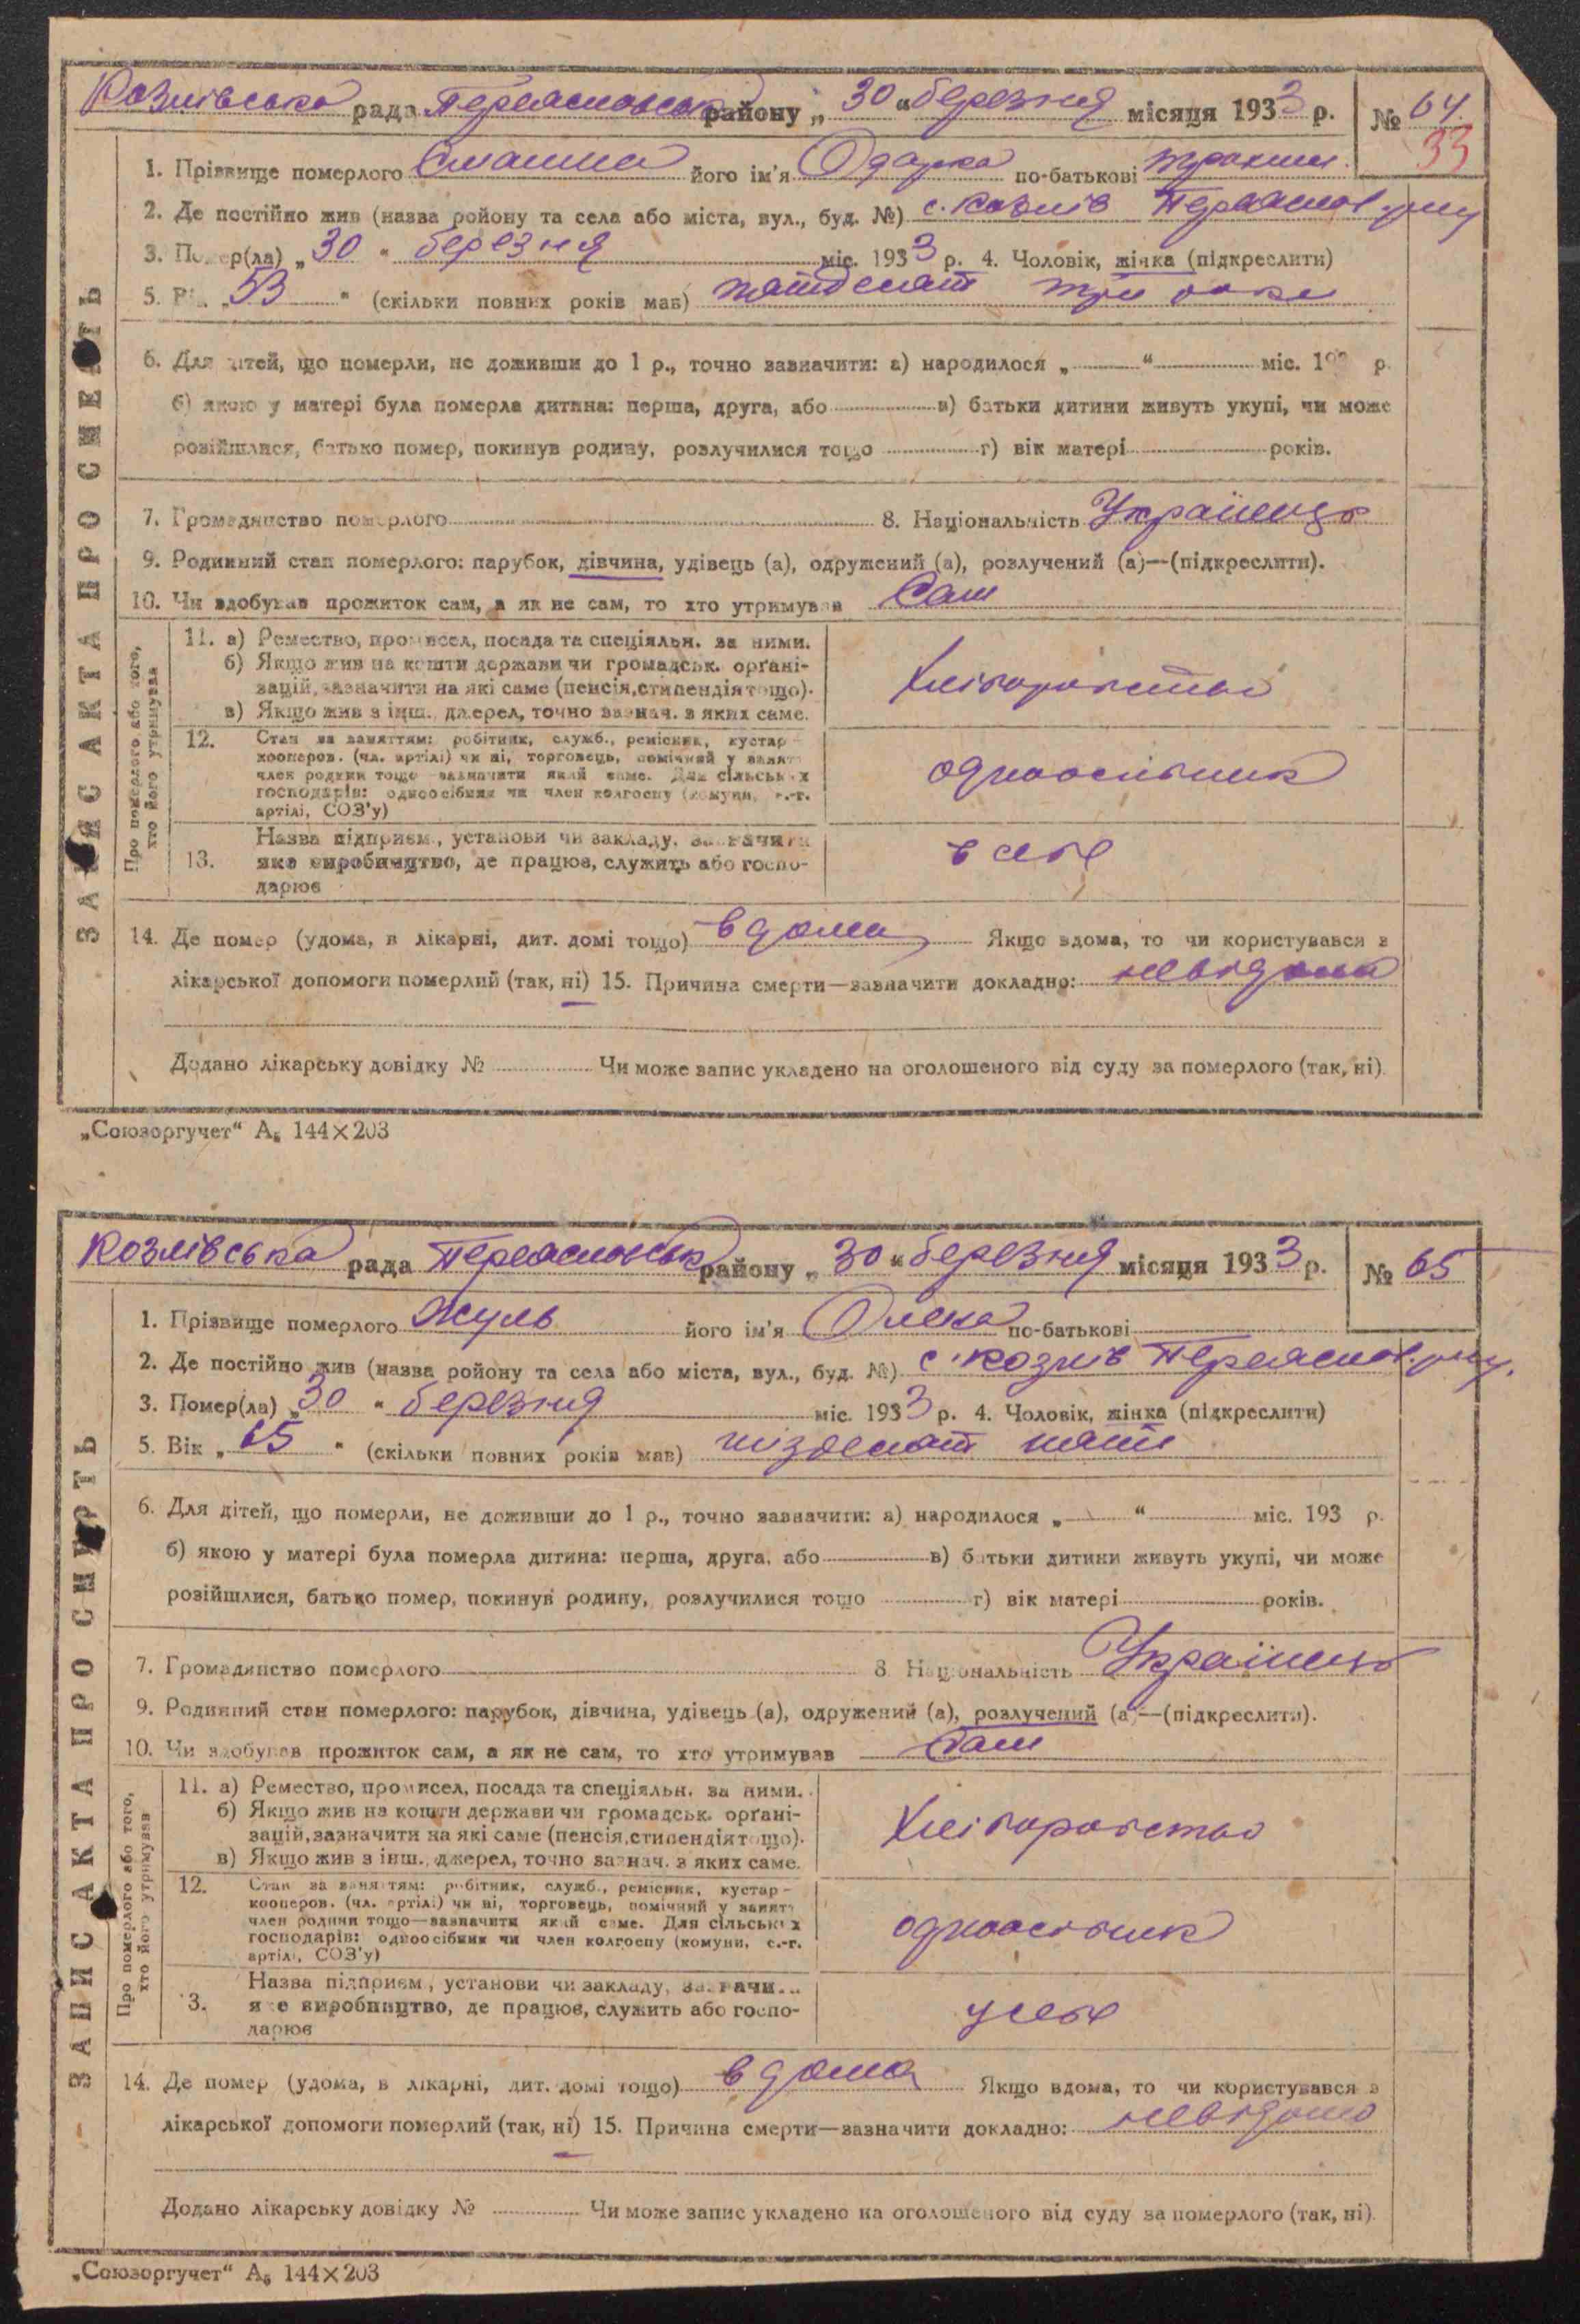 Козлівська рада Переяславськ району „30“ березня місяця 1933 р. № 64.
33
1. Прізвище померлого його ім'я Одарка по-батькові
2. Де постійно жив (назва ройону та села або міста, вул., буд. №) с. Козлів Переяслав. р-ну
3. Помер(ла) „30“ березня міс. 1933 р. 4. Чоловік, жінка (підкреслити)
5. Вік „53“ (скільки повних років мав) пятдесят три роки
6. Для дітей, що померли, не доживши до 1 р., точно зазначити: а) народилося „ “ міс. 193 р.
б) якою у матері була померла дитина: перша, друга, або в) батьки дитини живуть укупі, чи може
розійшлися, батько помер, покинув родину, розлучилися тощо г) вік матері років.
7. Громадянство померлого 8. Національність Українець
9. Родинний стан померлого: парубок, дівчина, удівець (а), одружений (а), розлучений (а)—(підкреслити).
10. Чи здобував прожиток сам, а як не сам, то хто утримував Сам
ЗАПИС АКТА ПРО СМЕРТЬ
Про померлого або того, хто його утримував
11. а) Ремество, промисел, посада та спеціяльн. за ними.
б) Якщо жив на кошти держави чи громадськ. орґані-
зацій, зазначити на які саме (пенсія, стипендія тощо).
в) Якщо жив з інш. джерел, точно зазнач. з яких саме.
Хліборобство
12. Стан за заняттям: робітник, служб., ремісник, кустар-
кооперов. (чл. артілі) чи ні, торговець, помічний у занятт
член родини тощо—зазначити який саме. Для сільських
господарів: одноосібник чи член колгоспу (комуни, с.-г.
артілі, СОЗ'у)
одноосібник
13. Назва підприєм., установи чи закладу, зазначити
яке виробництво, де працює, служить або госпо-
дарює
в себе
14. Де помер (удома, в лікарні, дит. домі тощо) вдома Якщо вдома, то чи користувався з
лікарської допомоги померлий (так, ні) 15. Причина смерти—зазначити докладно: невідома
Додано лікарську довідку № Чи може запис укладено на оголошеного від суду за померлого (так, ні).
„Союзоргучет“ А₅ 144×203
Козлівська рада Переяславськ району „30“ березня місяця 1933 р. № 65
1. Прізвище померлого Жуль його ім'я Олена по-батькові
2. Де постійно жив (назва ройону та села або міста, вул., буд. №) с. Козлів Переяслав. р-ну.
3. Помер(ла) „30“ березня міс. 1933 р. 4. Чоловік, жінка (підкреслити)
5. Вік „65“ (скільки повних років мав) шіздесят пять
6. Для дітей, що померли, не доживши до 1 р., точно зазначити: а) народилося „ “ міс. 193 р.
б) якою у матері була померла дитина: перша, друга, або в) батьки дитини живуть укупі, чи може
розійшлися, батько помер, покинув родину, розлучилися тощо г) вік матері років.
7. Громадянство померлого 8 Національність Українець
9. Родинний стан померлого: парубок, дівчина, удівець (а), одружений (а), розлучений (а)—(підкреслити).
10. Чи здобував прожиток сам, а як не сам, то хто утримував Сам
ЗАПИС АКТА ПРО СМЕРТЬ
Про померлого або того, хто його утримував
11. а) Ремество, промисел, посада та спеціяльн. за ними.
б) Якщо жив на кошти держави чи громадськ. орґані-
зацій, зазначити на які саме (пенсія, стипендія тощо).
в) Якщо жив з інш. джерел, точно зазнач. з яких саме.
Хліборобство
12. Стан за заняттям: робітник, служб., ремісник, кустар-
кооперов. (чл. артілі) чи ні, торговець, помічний у занятт
член родини тощо—зазначити який саме. Для сільських
господарів: одноосібник чи член колгоспу (комуни, с.-г.
артілі, СОЗ'у)
одноосібник
13. Назва підприєм., установи чи закладу, зазначи...
яке виробництво, де працює, служить або госпо-
дарює
у себе
14. Де помер (удома, в лікарні, дит. домі тощо) вдома Якщо вдома, то чи користувався з
лікарської допомоги померлий (так, ні) 15. Причина смерти—зазначити докладно: невідомо
Додано лікарську довідку № Чи може запис укладено на оголошеного від суду за померлого (так, ні).
„Союзоргучет“ А₅ 144×203